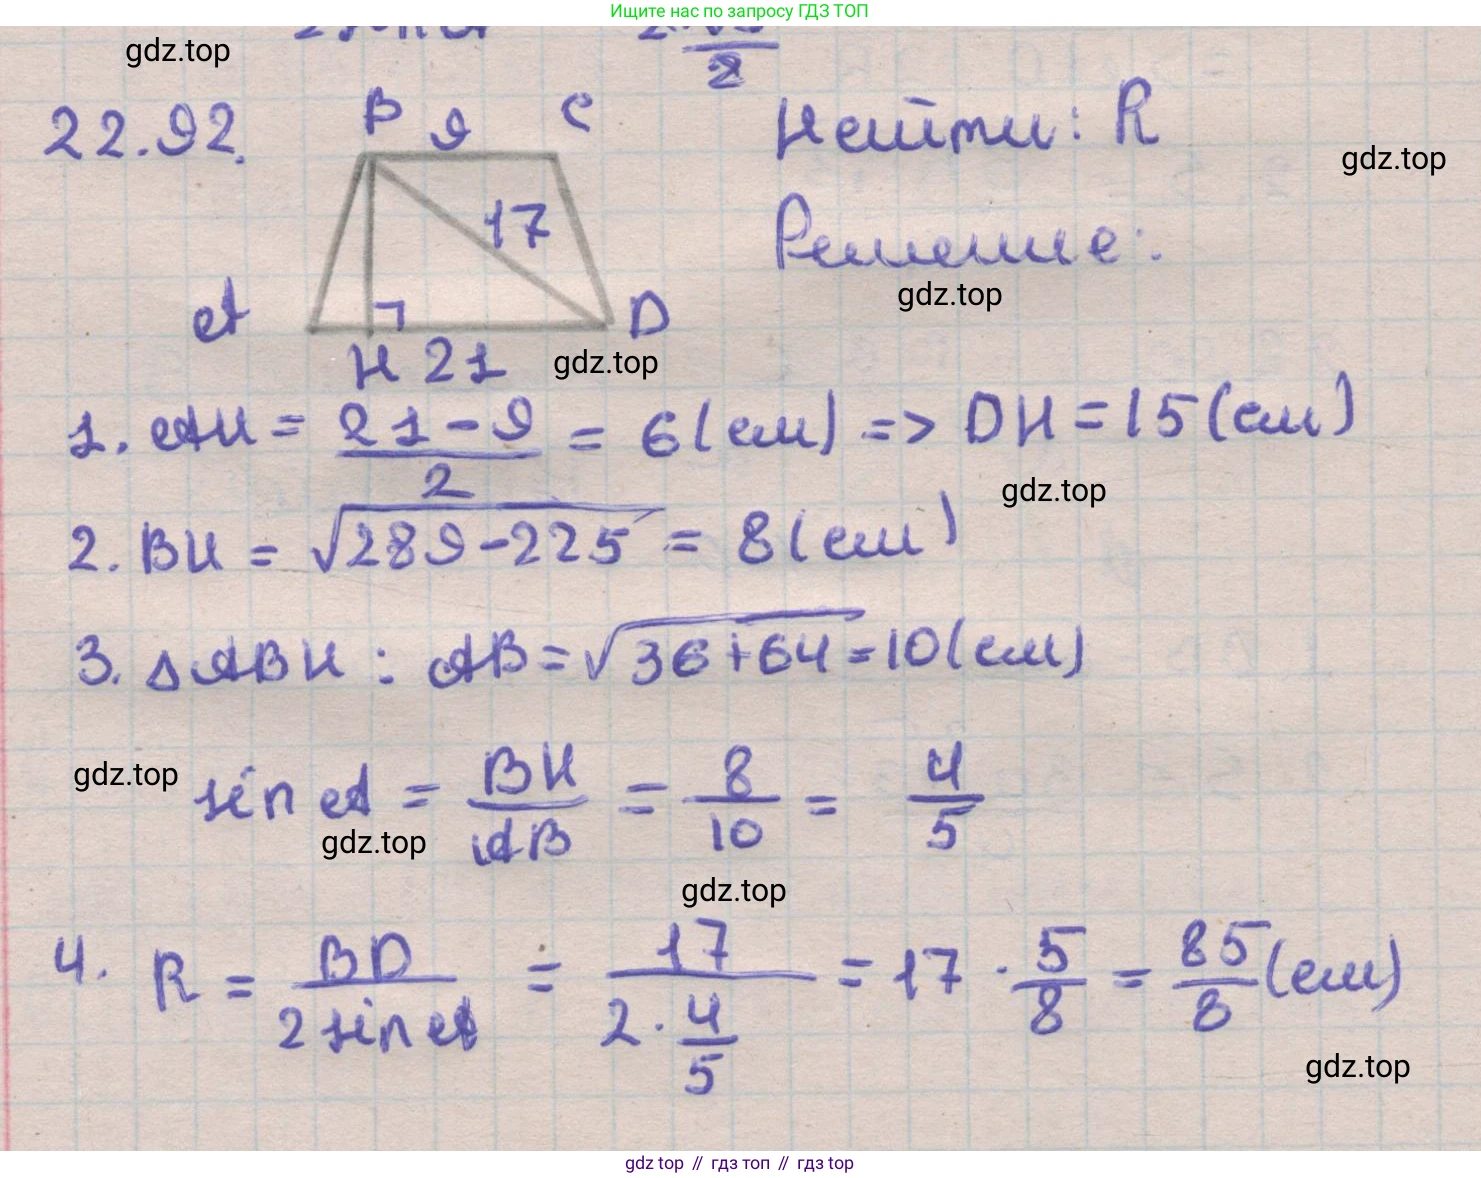 Ищите нас по запросу ГДЗ ТОП
gdz.top
22.92.
B 9 C
Найти: R
gdz.top
17
Решение:
gdz.top
A D
H 21
gdz.top
1. AH = \frac{21-9}{2} = 6 (см) => DH = 15 (см)
gdz.top
2. BH = √289-225 = 8 (см)
3. ΔABH : AB = √36+64 = 10 (см)
gdz.top
sin A = \frac{BH}{AB} = \frac{8}{10} = \frac{4}{5}
gdz.top
gdz.top
4. R = \frac{BD}{2 sin A} = \frac{17}{2 · \frac{4}{5}} = 17 · \frac{5}{8} = \frac{85}{8} (см)
gdz.top
gdz top // гдз топ // гдз top